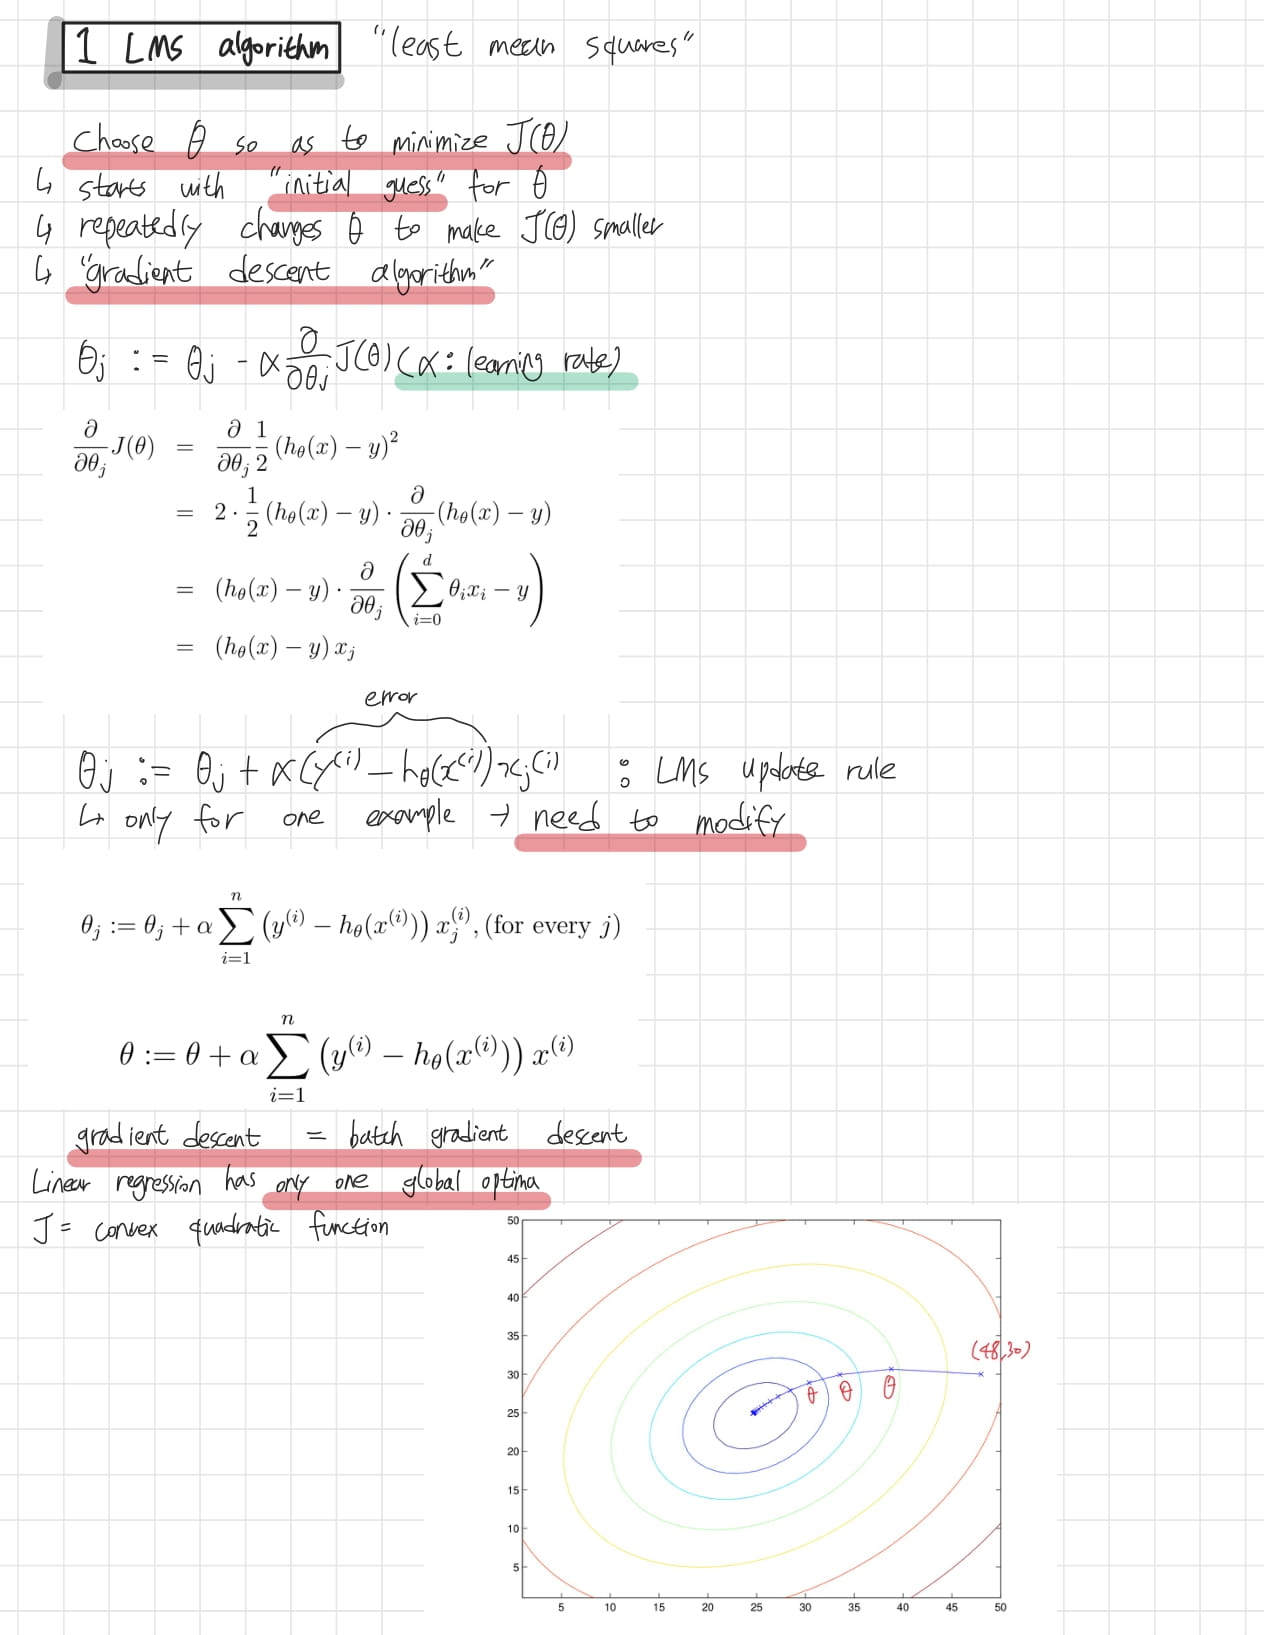 1 LMS algorithm "least mean squares"
Choose θ so as to minimize J(θ)
↳ starts with "initial guess" for θ
↳ repeatedly changes θ to make J(θ) smaller
↳ "gradient descent algorithm"
θj := θj - α ∂/∂θj J(θ) (α: learning rate)
∂/∂θj J(θ) = ∂/∂θj 1/2 (hθ(x) − y)²
= 2 · 1/2 (hθ(x) − y) · ∂/∂θj (hθ(x) − y)
= (hθ(x) − y) · ∂/∂θj (∑_{i=0}^{d} θixi − y)
= (hθ(x) − y) xj
error
θj := θj + α(y⁽ⁱ⁾ − hθ(x⁽ⁱ⁾))xj⁽ⁱ⁾ : LMS update rule
↳ only for one example → need to modify
θj := θj + α ∑_{i=1}^{n} (y⁽ⁱ⁾ − hθ(x⁽ⁱ⁾)) xj⁽ⁱ⁾, (for every j)
θ := θ + α ∑_{i=1}^{n} (y⁽ⁱ⁾ − hθ(x⁽ⁱ⁾)) x⁽ⁱ⁾
gradient descent = batch gradient descent
Linear regression has only one global optima
J = convex quadratic function
50
45
40
35
(48,30)
30
θ θ θ
25
20
15
10
5
5 10 15 20 25 30 35 40 45 50